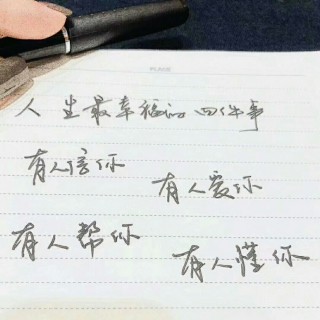 人生最幸福的四件事
有人信你
有人爱你
有人帮你
有人懂你